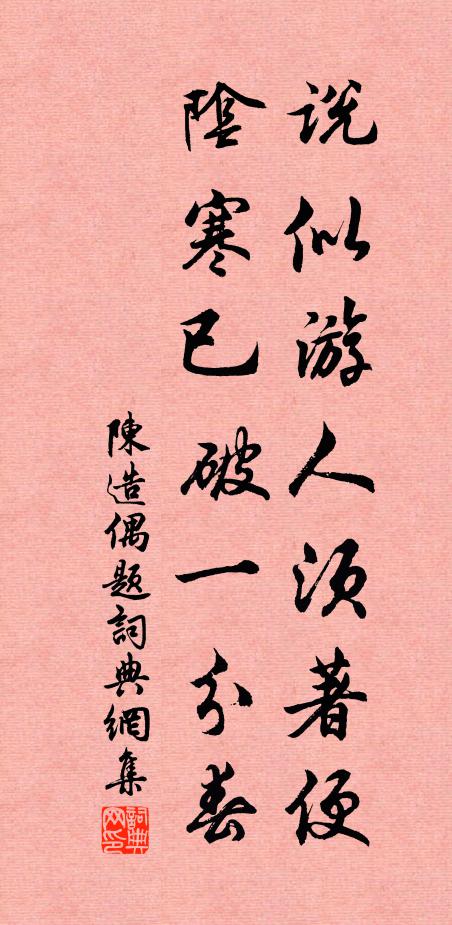 說似游人須著便
陰寒已破一分春
陳造偶題詞典網集
詞典网印